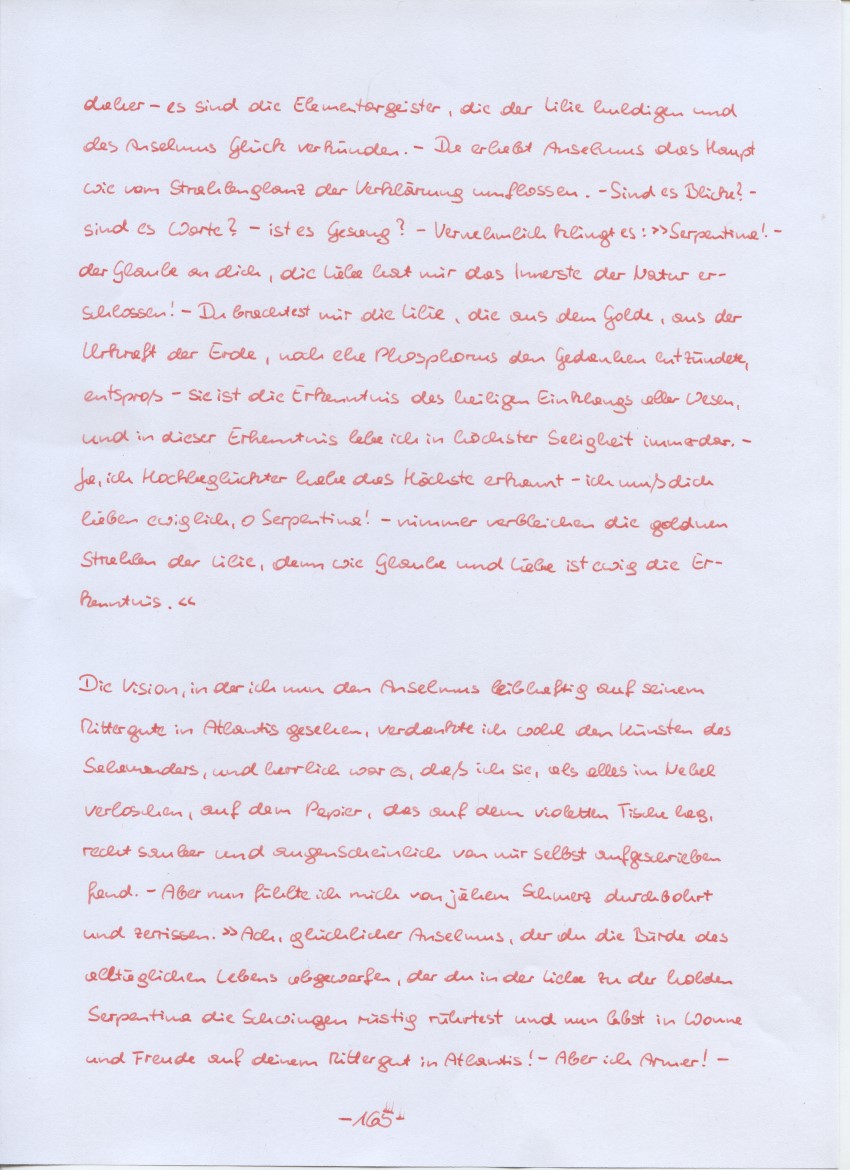 daher – es sind die Elementargeister, die der Lilie huldigen und
des Anselmus Glück verkünden. – Da erhebt Anselmus das Haupt
wie vom Strahlenglanz der Verklärung umflossen. – Sind es Blicke? –
sind es Worte? – ist es Gesang? – Vernehmlich klingt es: »Serpentina! –
der Glaube an dich, die Liebe hat mir das Innerste der Natur er-
schlossen! – Du brachtest mir die Lilie, die aus dem Golde, aus der
Urkraft der Erde, noch ehe Phosphorus den Gedanken entzündete,
entsproß – sie ist die Erkenntnis des heiligen Einklangs aller Wesen,
und in dieser Erkenntnis lebe ich in höchster Seligkeit immerdar. –
Ja, ich Hochbeglückter habe das Höchste erkannt – ich muß dich
lieben ewiglich, o Serpentina! – nimmer verbleichen die goldnen
Strahlen der Lilie, denn wie Glaube und Liebe ist ewig die Er-
kenntnis.«
Die Vision, in der ich nun den Anselmus leibhaftig auf seinem
Rittergute in Atlantis gesehen, verdankte ich wohl den Künsten des
Salamanders, und herrlich war es, daß ich sie, als alles im Nebel
verloschen, auf dem Papier, das auf dem violetten Tische lag,
recht sauber und augenscheinlich von mir selbst aufgeschrieben
fand. – Aber nun fühlte ich mich von jähem Schmerz durchbohrt
und zerrissen. »Ach, glücklicher Anselmus, der du die Bürde des
alltäglichen Lebens abgeworfen, der du in der Liebe zu der holden
Serpentina die Schwingen rüstig rührtest und nun lebst in Wonne
und Freude auf deinem Rittergut in Atlantis! – Aber ich Armer! –
– 165 –